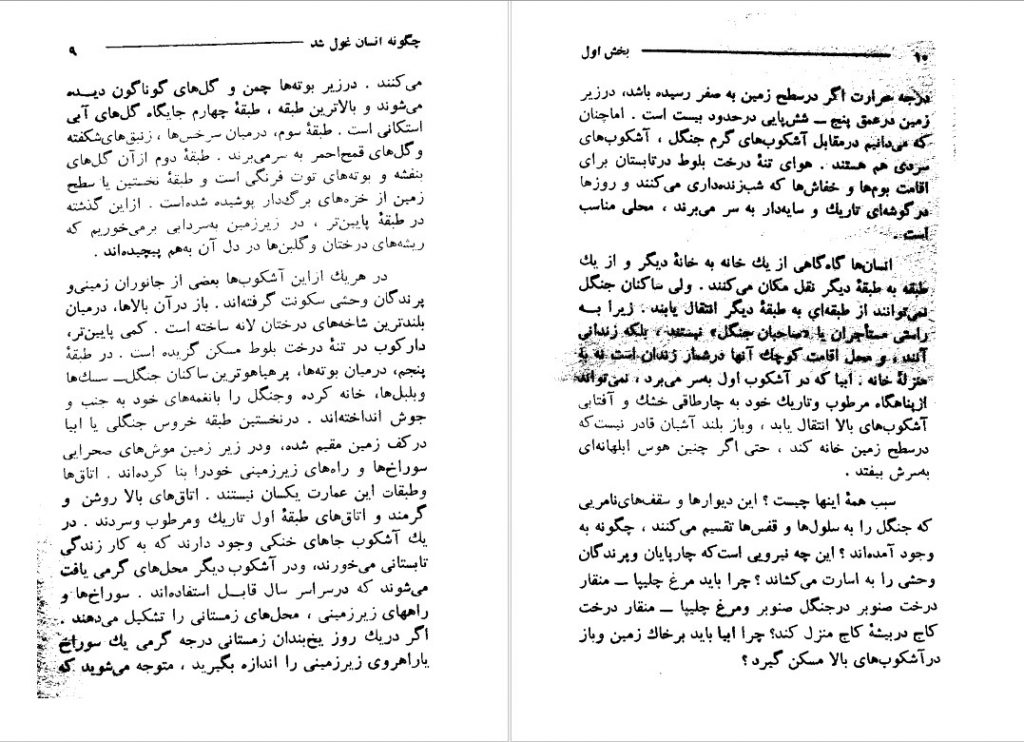 چگونه انسان غول شد ۹
می‌کنند . درزیر بوته‌ها چمن و گل‌های گوناگون دیـده
می‌شوند و بالاترین طبقه ، طبقهٔ چهارم جایگاه گل‌های آبی
استکانی است . طبقهٔ سوم، درمیان سرخس‌ها ، زنبق‌های‌شکفته
وگل‌های قمح‌احمر به سرمی‌برند . طبقهٔ دوم ازآن گل‌های
بنفشه و بوته‌های توت فرنگی است و طبقهٔ نخستین یا سطح
زمین از خزه‌های برگ‌دار پوشیده شده‌است . ازاین گذشته
در طبقهٔ پایین‌تر ، در زیرزمین به‌سردابی برمی‌خوریم که
ریشه‌های درختان وگلبن‌ها در دل آن به‌هم پیچیده‌اند .
در هریك ازاین آشکوب‌ها بعضی از جانوران زمینی‌و
پرندگان وحشی سکونت گرفته‌اند. باز درآن بالاها، درمیان
بلندترین شاخه‌های درختان لانه ساخته است . کمی پایین‌تر،
دارکوب در تنهٔ درخت بلوط مسکن گزیده است . در طبقهٔ
پنجم، درمیان بوته‌ها، پرهیاهوترین ساکنان جنگل‌ــ سسك‌ها
وبلبل‌ها، خانه کرده وجنگل را بانغمه‌های خود به جنب و
جوش انداخته‌اند . درنخستین طبقه خروس جنگلی یا ابیا
درکف زمین مقیم شده، ودر زیر زمین موش‌های صحرایی
سوراخ‌ها و راه‌های زیرزمینی خودرا بنا کرده‌اند . اتاق‌ها
وطبقات این عمارت یکسان نیستند . اتاق‌های بالا روشن و
گرمند و اتاق‌های طبقهٔ اول تاریك ومرطوب وسردند . در
یك آشکوب جاهای خنکی وجود دارند که به کار زندگی
تابستانی می‌خورند، ودر آشکوب دیگر محل‌های گرمی یافت
می‌شوند که درسراسر سال قابـل استفاده‌اند . سوراخ‌ها و
راههای زیرزمینی ، محل‌های زمستانی را تشکیل می‌دهند .
اگر دریك روز یخ‌بندان زمستانی درجه گرمی یك سوراخ
یاراهروی زیرزمینی را اندازه بگیرید ، متوجه می‌شوید که
بخش اول ۱۰
درجه حرارت اگر درسطح زمین به صفر رسیده باشد، درزیر
زمین درعمق پنج ــ شش‌پایی درحدود بیست است . اماچنان
که می‌دانیم درمقابل آشکوب‌های گرم جنگل ، آشکوب‌های
سردی هم هستند . هوای تنهٔ درخت بلوط درتابستان برای
اقامت بوم‌ها و خفاش‌ها که شب‌زنده‌داری می‌کنند و روزها
درگوشه‌ای تاریك و سایه‌دار به سر می‌برند ، محلی مناسب
است .
انسان‌ها گاه‌گاهی از یك خانه به خانهٔ دیگر و از یك
طبقه به طبقهٔ دیگر نقل مکان می‌کنند . ولی ساکنان جنگل
نمی‌توانند از طبقه‌ای به طبقهٔ دیگر انتقال یابند . زیرا بـه
راستی مستأجران یا «صاحبان جنگل» نیستند ، بلکه زندانی
آنند ، و محل اقامت کوچك آنها درشمار زندان است نه به
منزلهٔ خانه . ابیا که در آشکوب اول به‌سر می‌برد ، نمی‌تواند
ازپناهگاه مرطوب وتاریك خود به چارطاقی خشك و آفتابی
آشکوب‌های بالا انتقال یابد ، وباز بلند آشیان قادر نیست‌که
درسطح زمین خانه کند ، حتی اگر چنین هوس ابلهانه‌ای
به‌سرش بیفتد .
سبب همهٔ اینها چیست ؟ این دیوارها و سقف‌های‌نامریی
که جنگل را به سلول‌ها و قفس‌ها تقسیم می‌کنند ، چگونه به
وجود آمده‌اند ؟ این چه نیرویی است‌که چارپایان وپرندگان
وحشی را به اسارت می‌کشاند ؟ چرا باید مرغ چلیپا ــ منقار
درخت صنوبر درجنگل صنوبر ومرغ چلیپا ــ منقار درخت
کاج دربیشهٔ کاج منزل کند؟ چرا ابیا باید برخاك زمین وباز
درآشکوب‌های بالا مسکن گیرد ؟